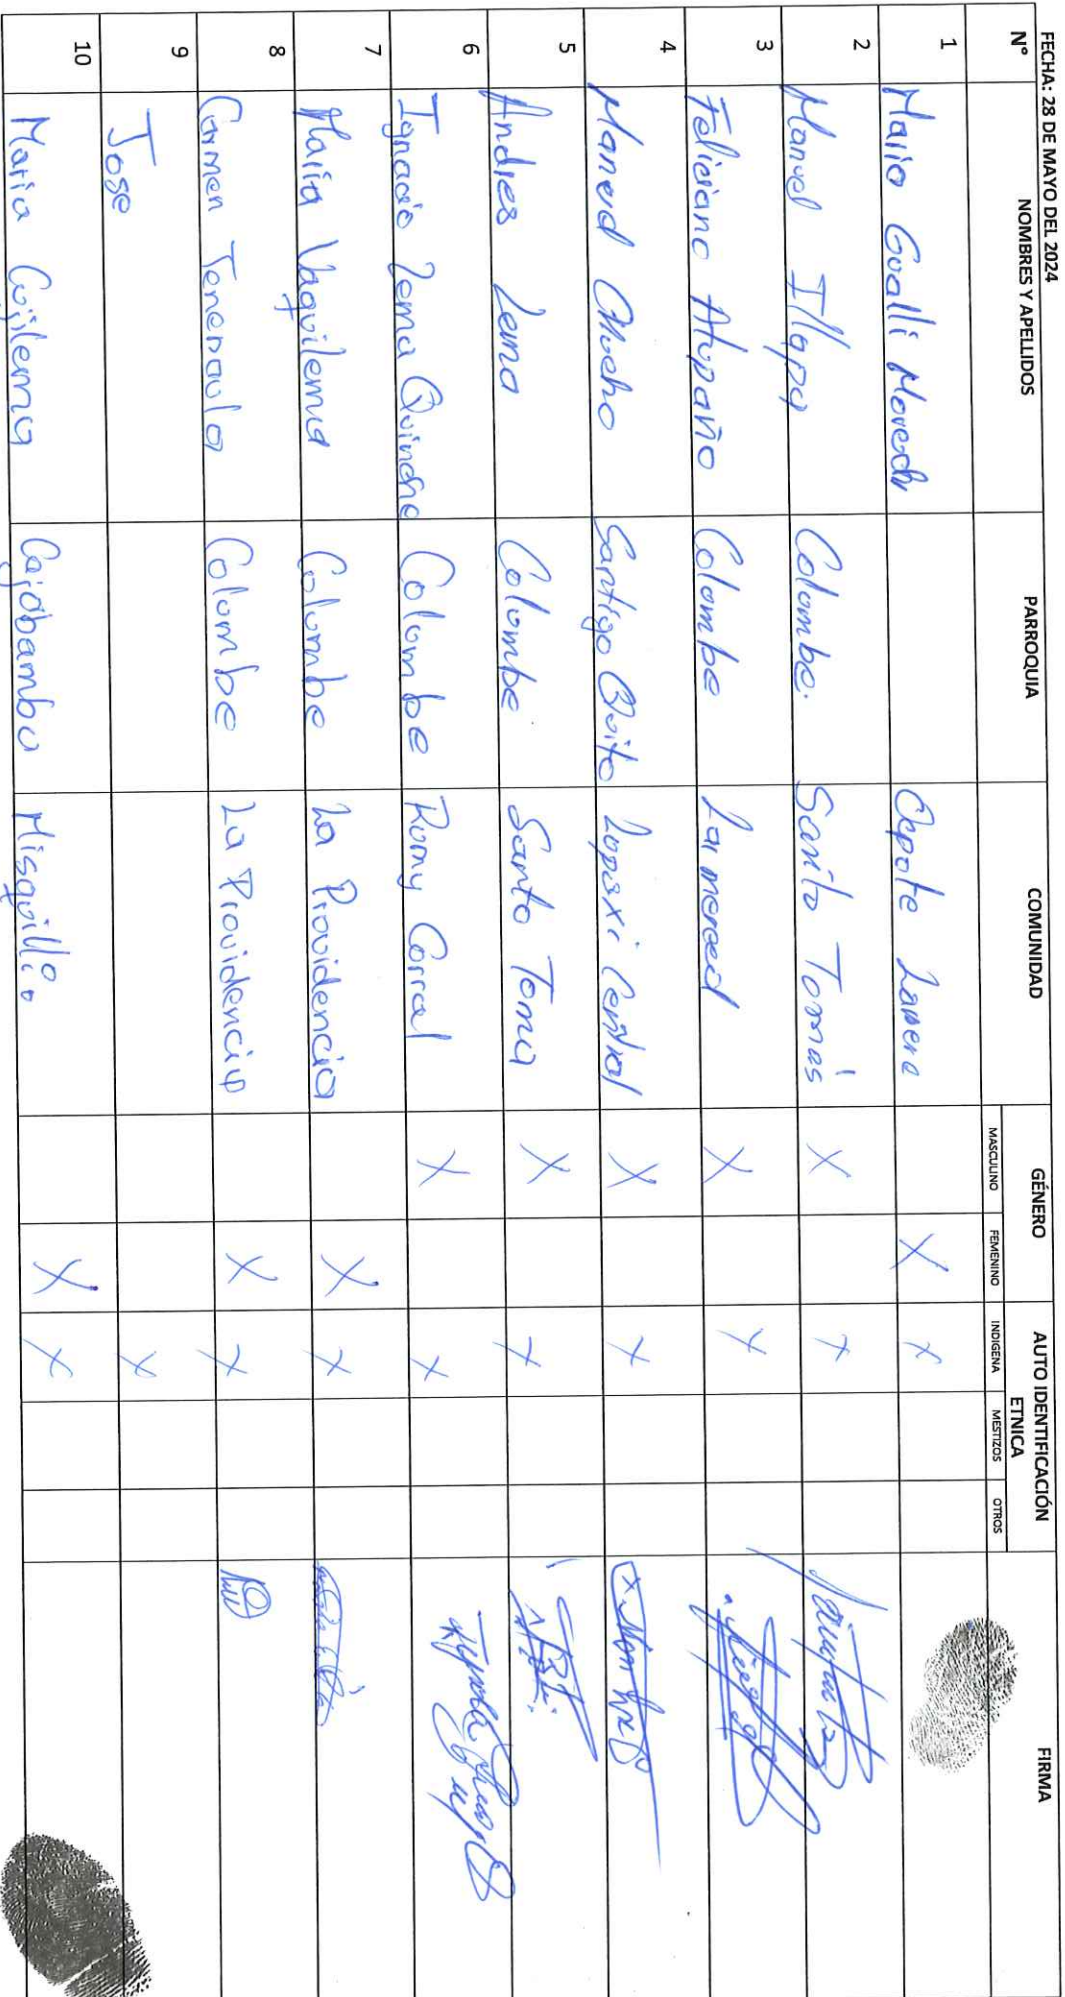 FECHA: 28 DE MAYO DEL 2024
N° NOMBRES Y APELLIDOS PARROQUIA COMUNIDAD GÉNERO AUTO IDENTIFICACIÓN ETNICA FIRMA
MASCULINO FEMENINO INDIGENA MESTIZOS OTROS
1 Maria Gualli Cepote X X
2 Manuel Illapa Colombe. Santo Tomás X X
3 Feliciano Atupaño Colombe La merced X X
4 Manuel Chucho Santigo Quito Lupaxi Central X X
5 Andres Lema Colombe Santo Toma X X
6 Ignacio Lema Quinche Colombe Rumy Corral X X
7 Maria Yaquilema Colombe La Providencia X X
8 Carmen Tenenaula Colombe La Providencia X X
9 Jose X
10 Maria Cujilema Cajabamba Misquilli X X